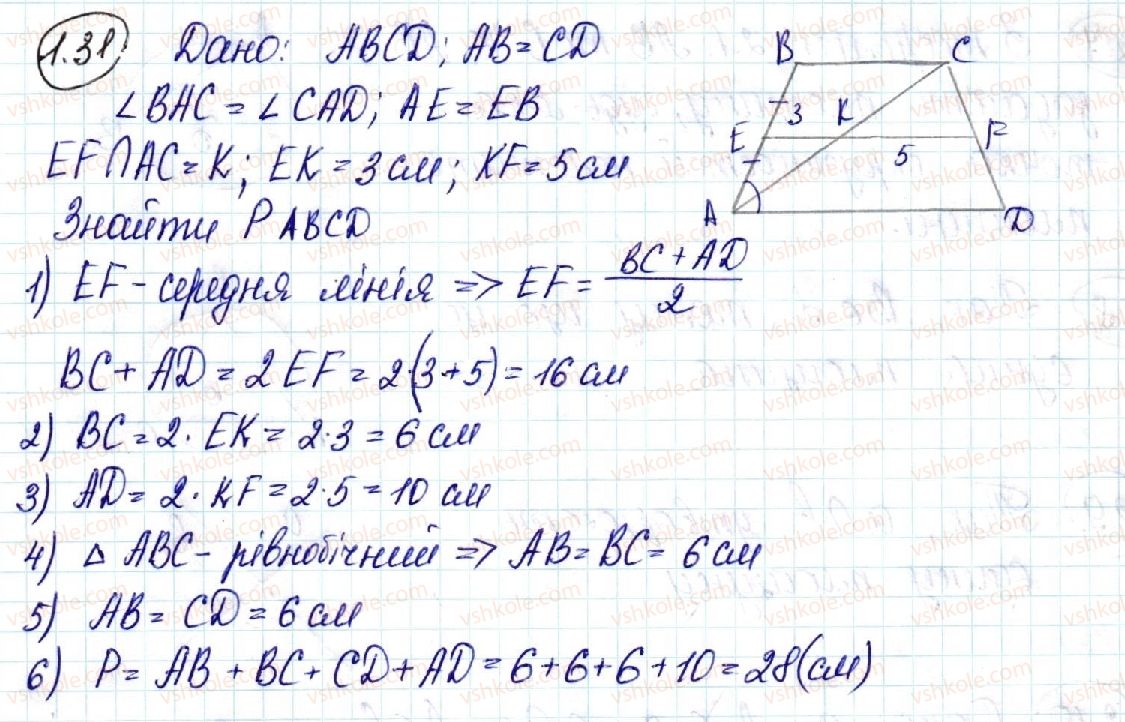 1.31 Дано: ABCD; AB = CD
∠BAC = ∠CAD; AE = EB
EF∩AC = K; EK = 3 см; KF = 5 см
Знайти P ABCD
B C
3 K
E F
5
A D
1) EF - середня лінія => EF = (BC + AD)/2
BC + AD = 2 EF = 2·(3+5) = 16 см
2) BC = 2 · EK = 2·3 = 6 см
3) AD = 2 · KF = 2·5 = 10 см
4) △ ABC - рівнобічний => AB = BC = 6 см
5) AB = CD = 6 см
6) P = AB + BC + CD + AD = 6 + 6 + 6 + 10 = 28 (см)
vshkole.com